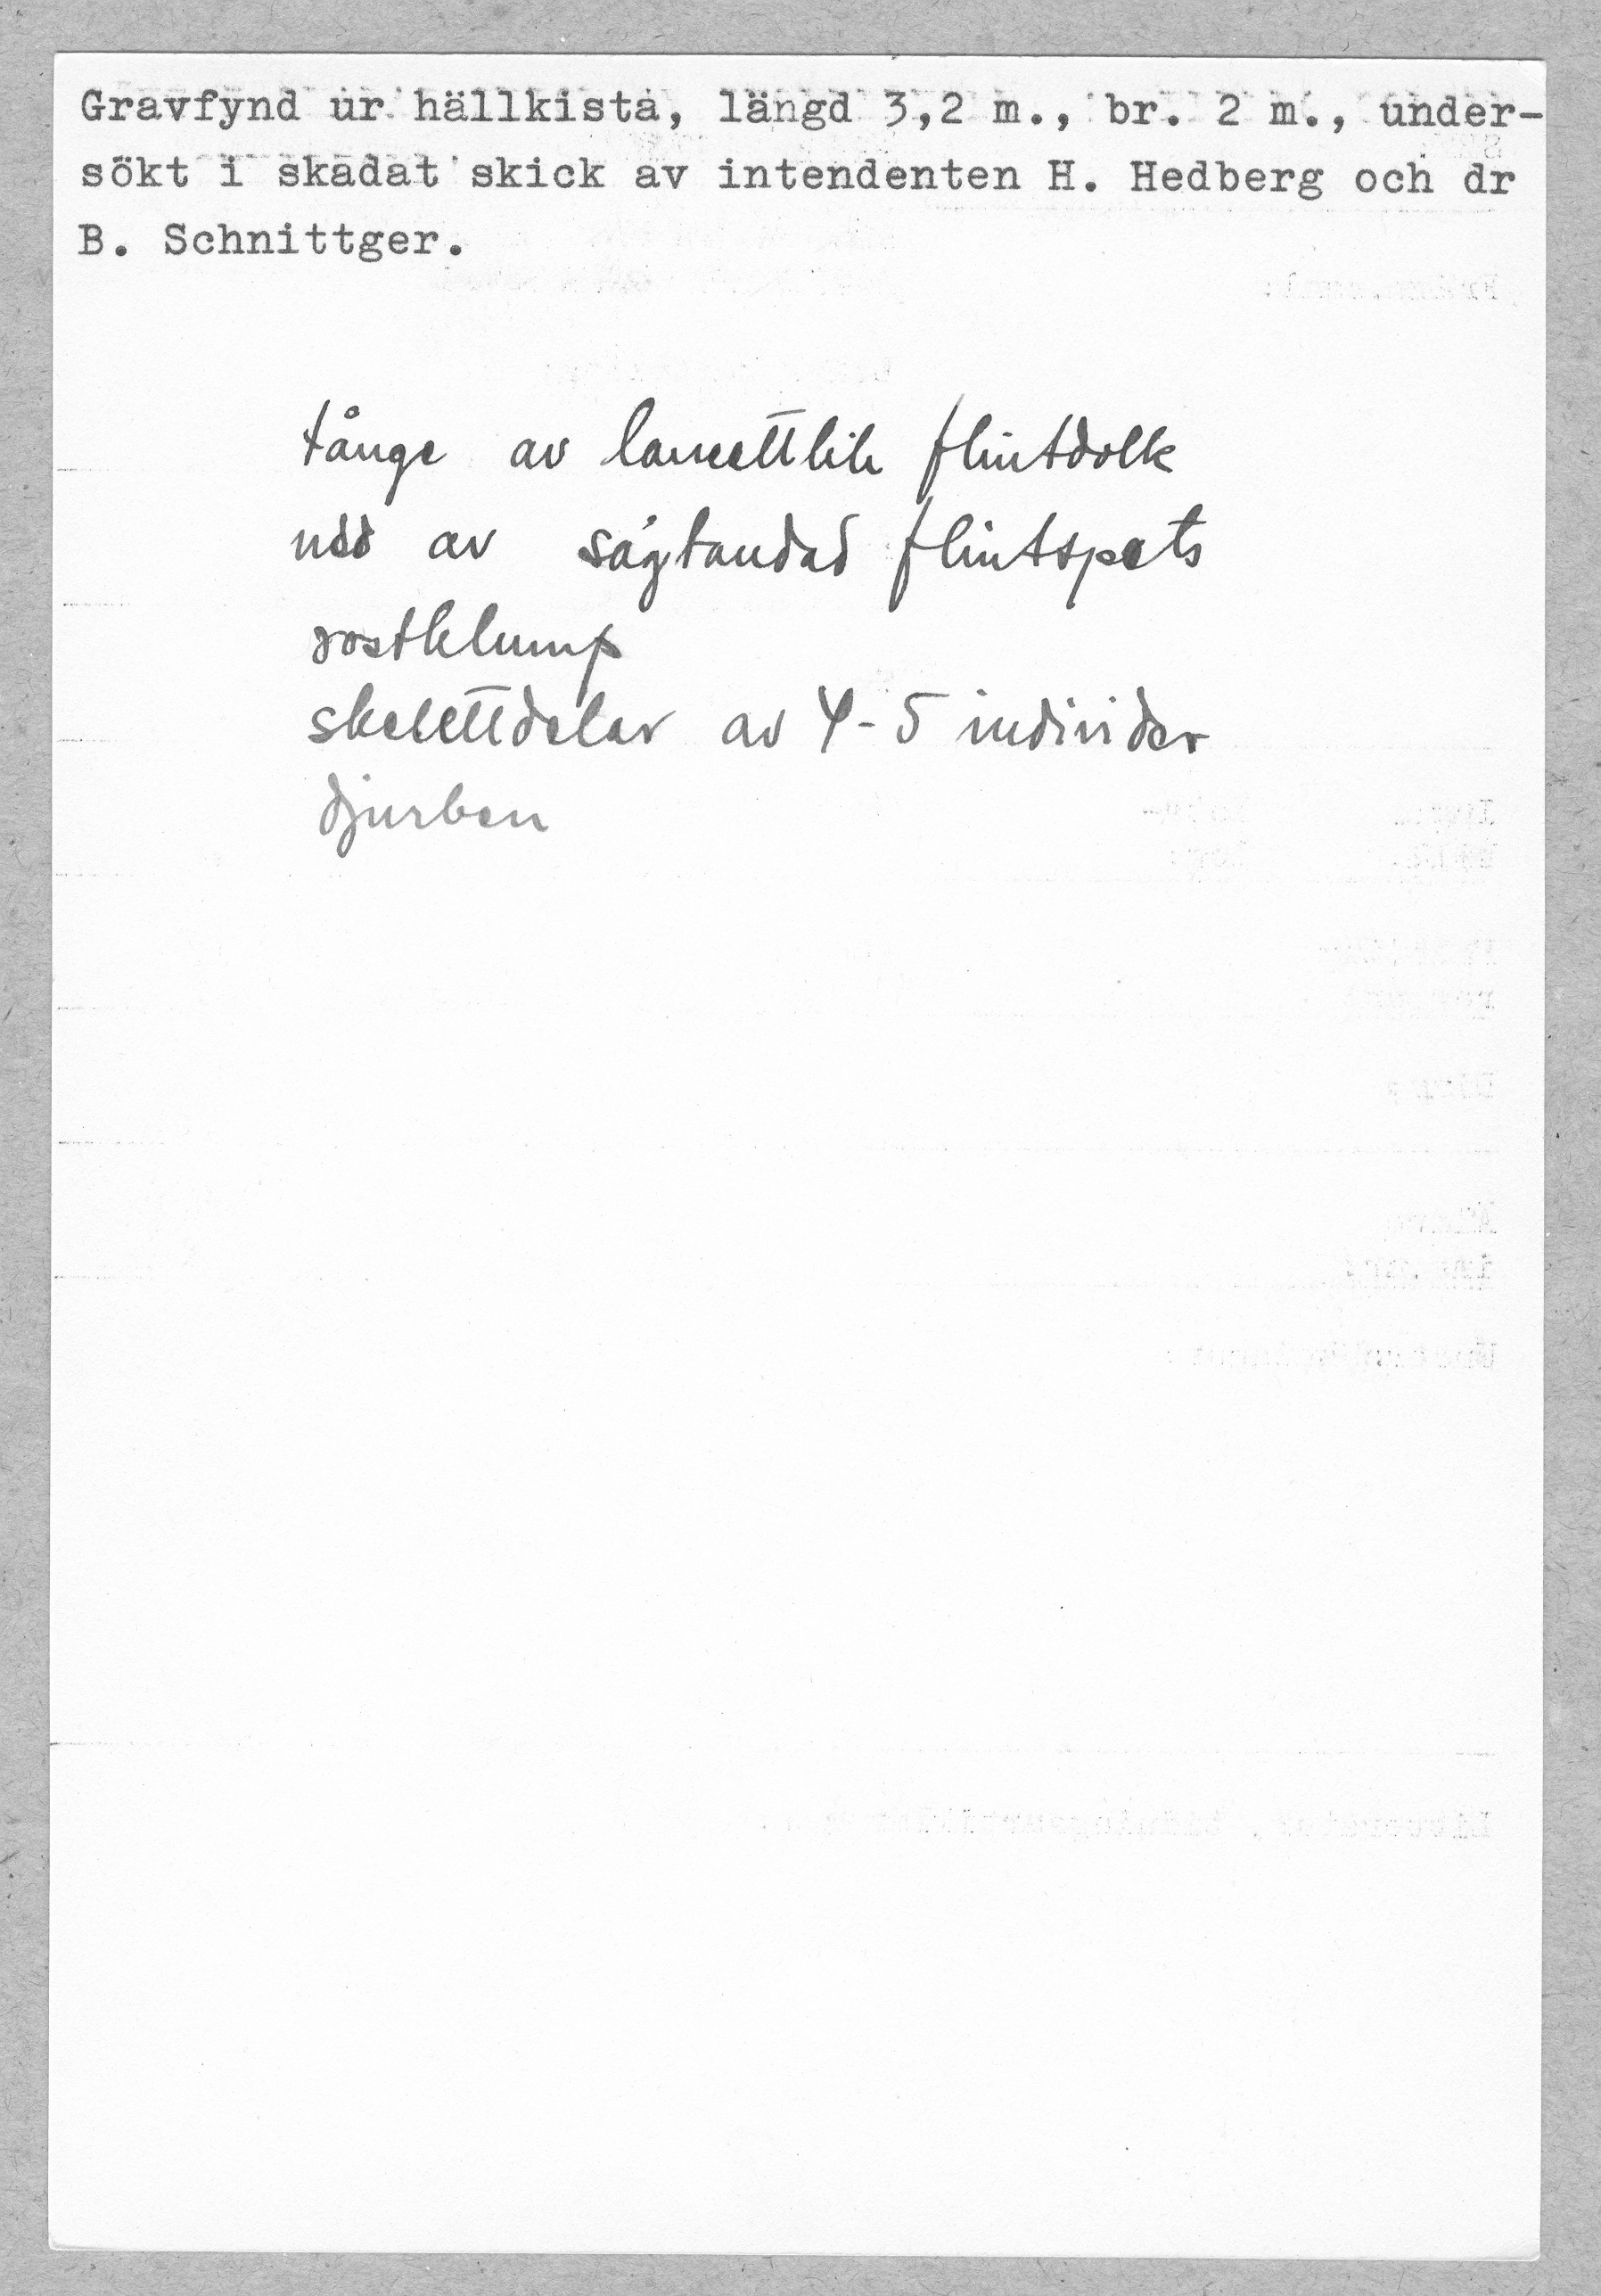 Gravfynd ur hällkista, längd 3,2 m., br. 2 m., under-
sökt i skadat skick av intendenten H. Hedberg och dr
B. Schnittger.
tånge av lancettlik flintdolk
udd av sågtandad flintspets
rostklump
skelettdelar av 4-5 individer
djurben